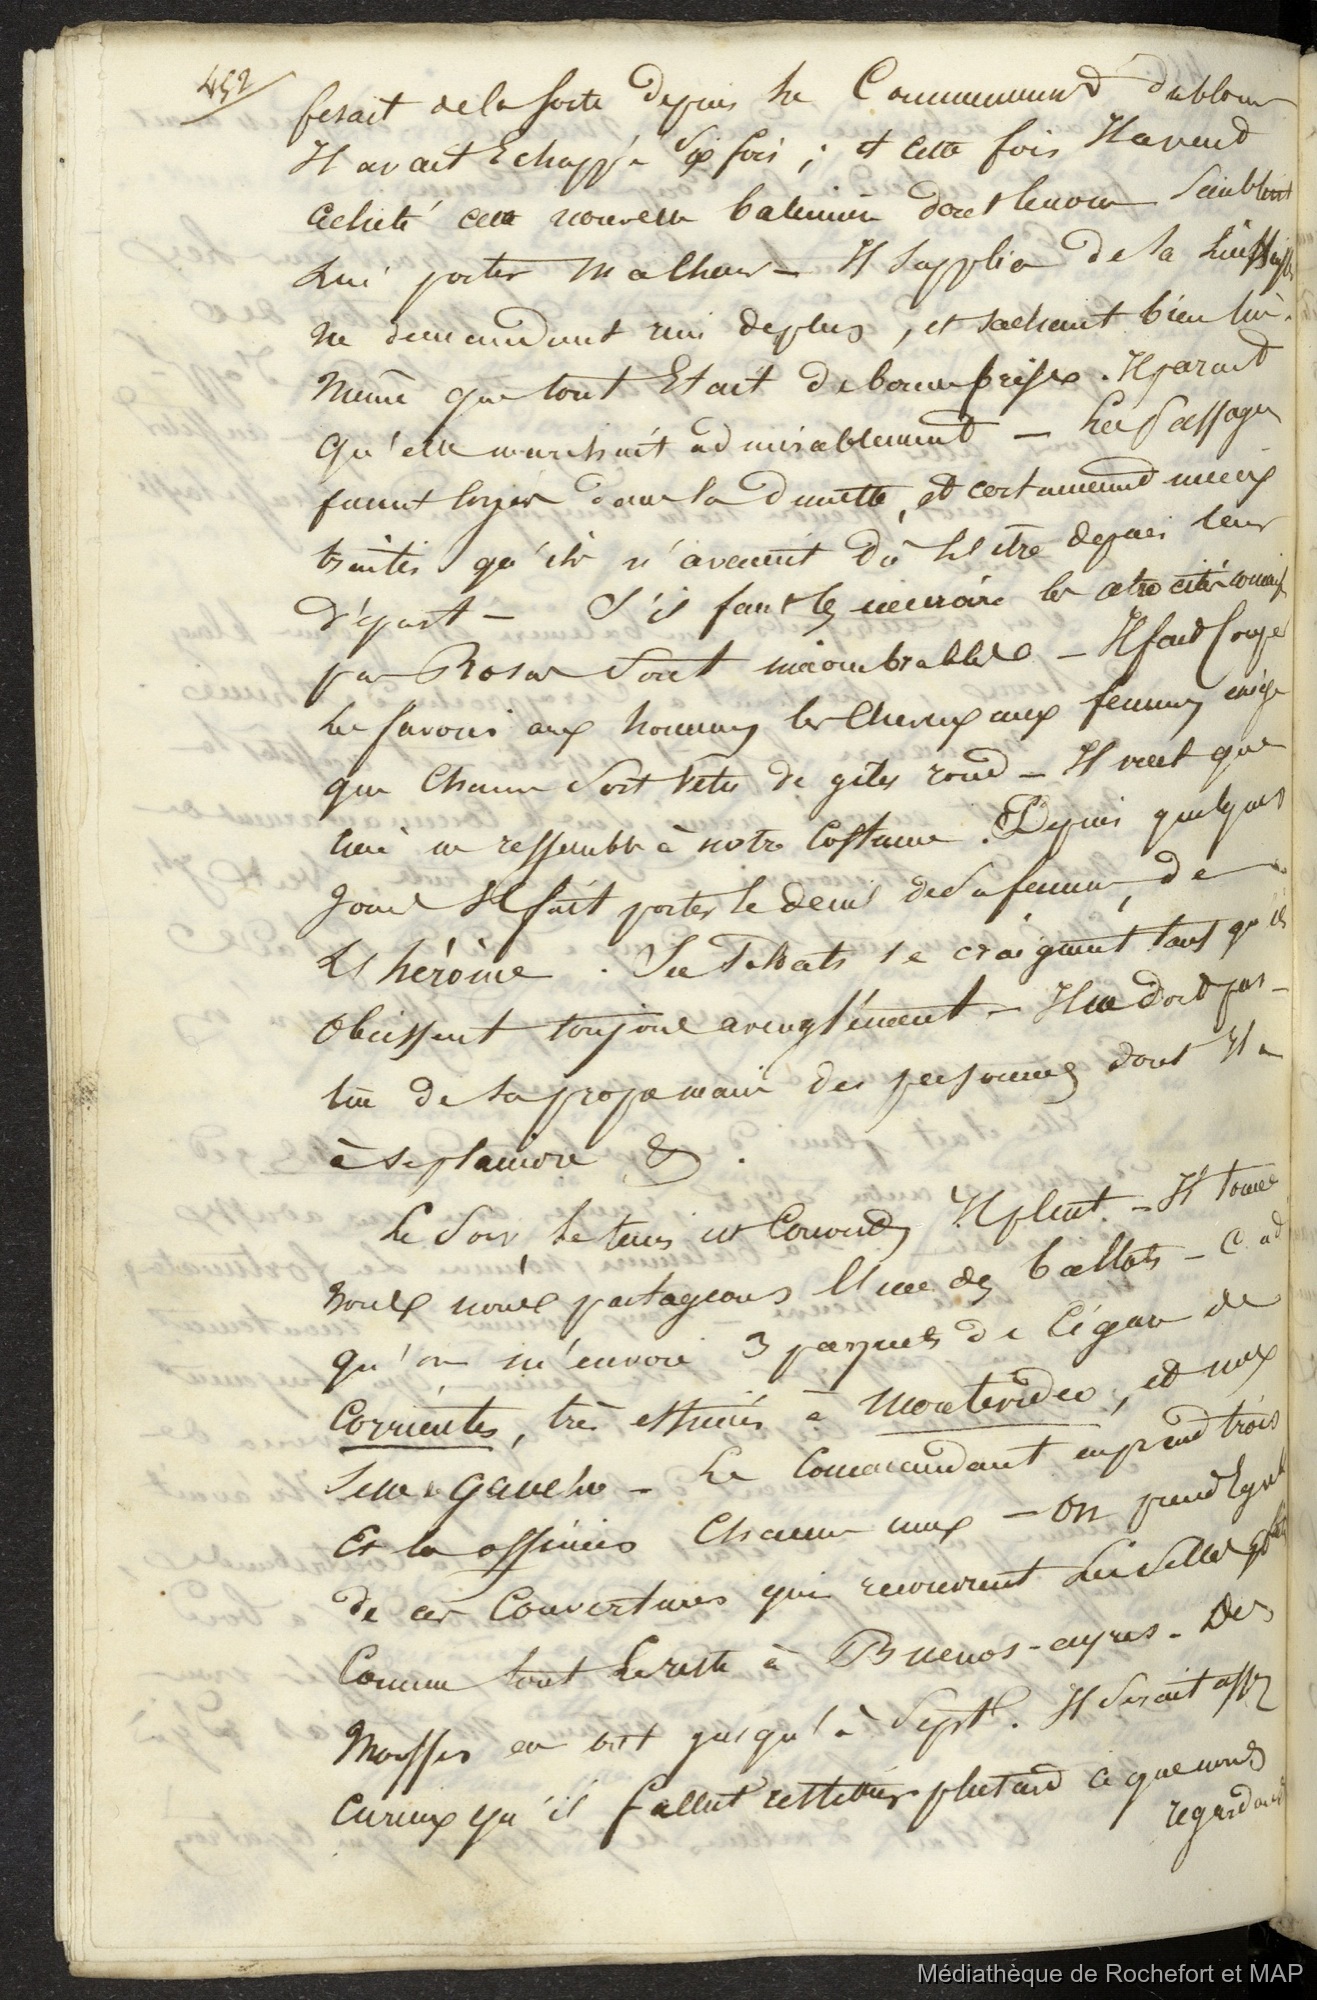 452
fesait de la sorte depuis le Commencement du blocus
Il avait Echappé six fois ; et cette fois Il avait
acheté cette nouvelle baleinière dont le nom Semblait
Lui porter malheur – Il supplia de la Lui laisser
ne demandant rien deplus, et sachant bien lui-
Même que tout Etait de bonne prise. Il parait
Qu'elle marchait admirablement – Les Passagers
furent logés dans la dunette, et certainement mieux
traités qu'ils n'avaient dû l'être depuis leur
départ – S'il faut les en croire les atrocités
par Rosas Sont innombrables – Il fait Couper
Les favoris aux hommes les Cheveux aux femmes exige
que Chacun Soit Vêtu de gilet rond – Il veut que
rien ne ressemble à notre Costume. Depuis quelques
Jours Il fait porter le deuil de Sa femme, de
L'héroïne. Ses Soldats le craignent tant qu'ils
Obeissent toujours aveuglément – Il ne doit pas –
de sa propre main des personnes dont Il a
à se plaindre &.
Le Soir, le tems est Couvert, Il pleut. – Il tonne
Nous nous partageons l'un des ballots – C. a d
qu'on m'envoie 3 paquets de Cigares de
Corrientes, très estimés à Montevideo, et une
Selle de Gaucho – Le Commandant en prend trois
Et les officiers Chacun une – On prend Egalement
de ces Couvertures qui recouvrent Les Selles
Comme tout le reste à Buenos-ayres. Des
Mousses en ont jusqu'à Sept. Il Serait assez
Curieux qu'il fallut restituer plus tard ce que nous
regardons
Médiathèque de Rochefort et MAP